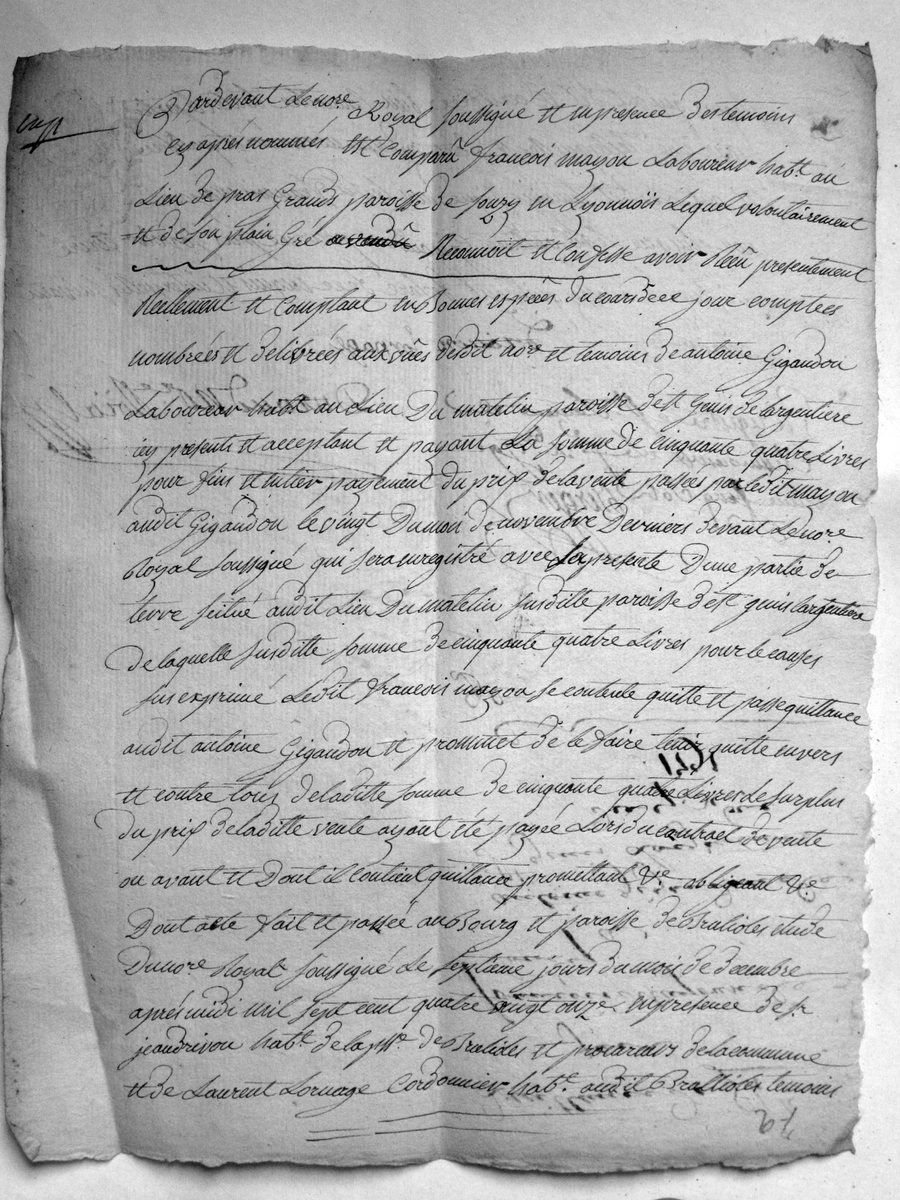 Pardevant Le nore Royal soussigné et en presence des temoins
cy après nommés est Comparû françois mazou Laboureur habt. au
Lieu de pras Grands paroisse de souzy en Lyonnois Lequel volontairement
et de son plain Gré a vendû Reconnoit et Confesse avoir Recû presentement
Reellement et Comptant en Bonnes espèces du cours de ce jour comptées
nombrées et delivrées aux vûes dudit nore et temoins de antoine Gigandou
Laboureur habt. au Lieu Du matelin paroisse de st Genis de Largentiere
icy present et acceptant et payant La somme de cinquante quatre Livres
pour fins et entier payement du prix de la vente passées par ledit mazou
audit Gigandou le vingt Du moi de novembre Derniers devant Le nore.
Royal soussigné qui sera enregistré avec La presente D'une partie de
terre scitué audit Lieu Du matelin susditte paroisse de st genis Largentiere
de laquelle susditte somme de cinquante quatre Livres pour le causes
sus exprimé Ledit françois mazou se contente quitte et passe quittance
audit antoine Gigandou et prommet de le faire tenir quitte envers
et contre tous de laditte somme de cinquante quatre Livres Le surplus
du prix de laditte vente ayant été payée Lors du contract de vente
ou avant et Dont il Contient quittance promettant &e obligeant &e
Dont acte fait et passée au Bourg et paroisse de Bralioles etude
Du nore. Royal soussigné Le septieme jours du mois de decembre
après midi mil sept cent quatre vingt onze en presence de sr.
jean drivou habt. de la psse. de Bralioles et procureur de la commune
et de Laurent Lornage Cordonnier habt. audit Brallioles temoins